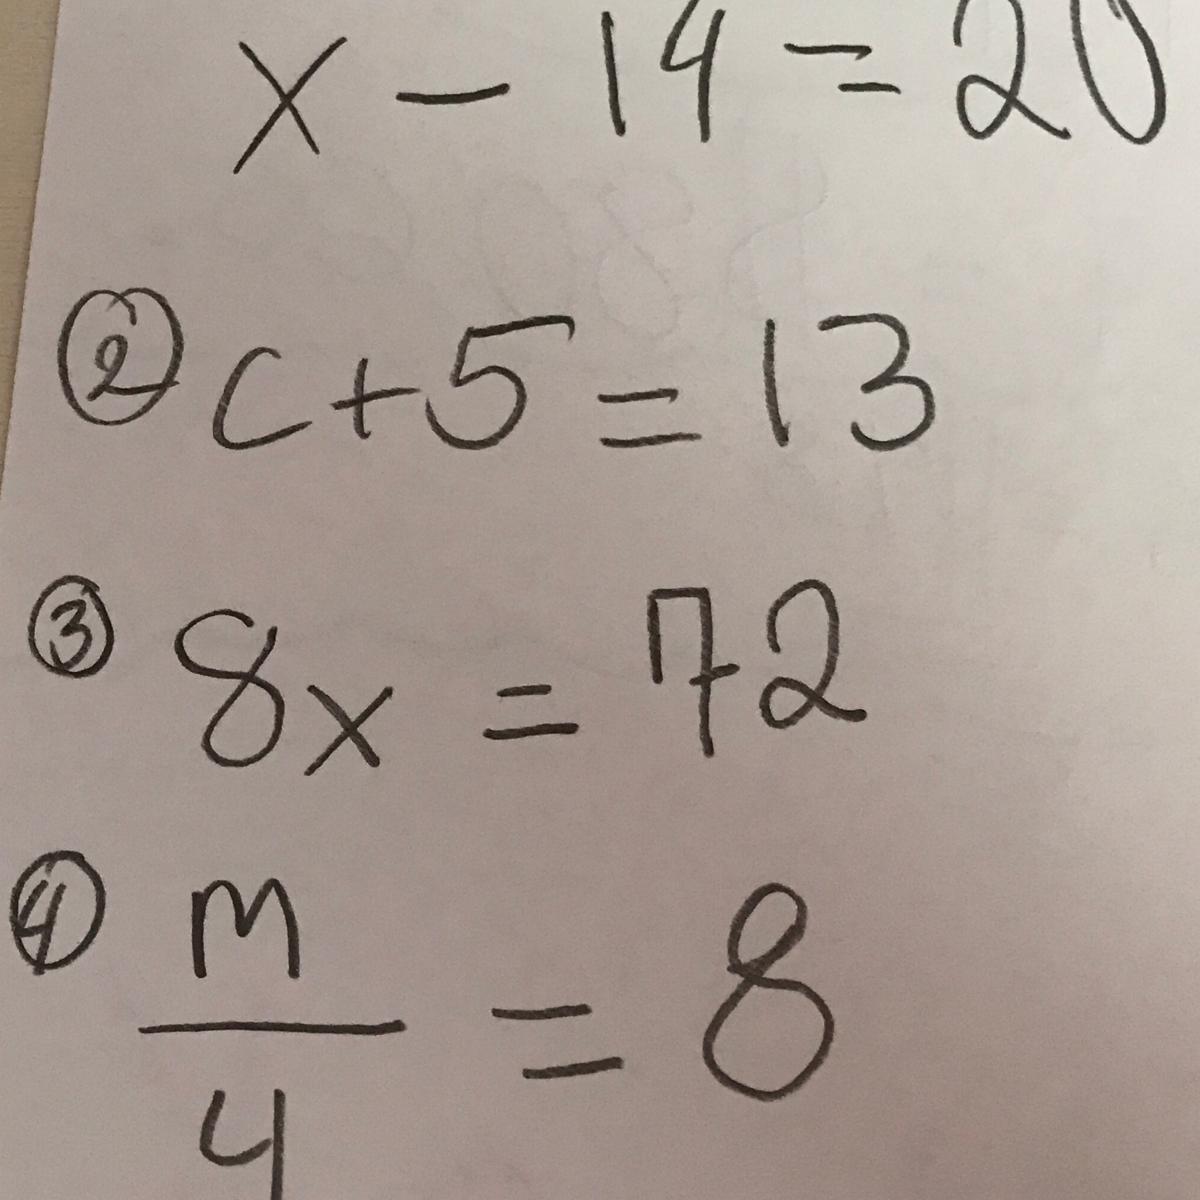 x - 14 = 20
② c + 5 = 13
③ 8x = 72
④ m/4 = 8